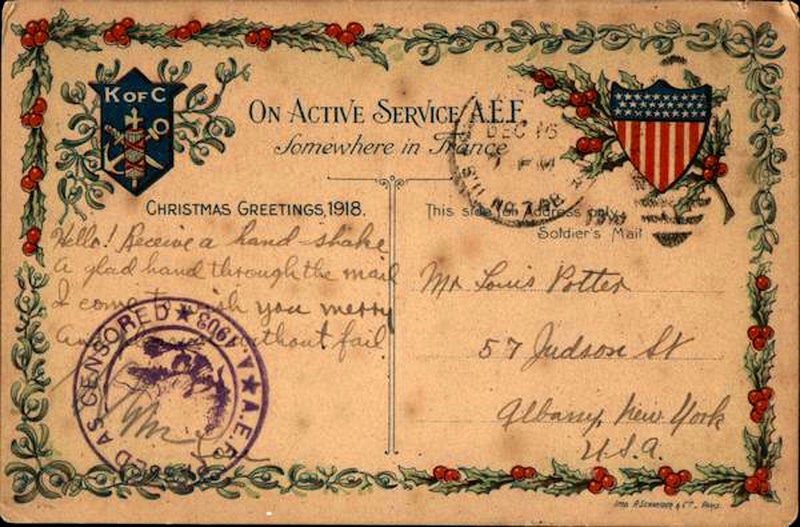 K OF C
ON ACTIVE SERVICE A.E.F.
Somewhere in France
DEC 16
CHRISTMAS GREETINGS, 1918.
This side for Address only.
Soldier's Mail
Hello! Receive a hand-shake
A glad hand through the mail
I come to wish you merry
without fail
CENSORED ★ A.903
★ A.E.F.
Mr Louis Potter
57 Judson St
Albany, New York
U.S.A.